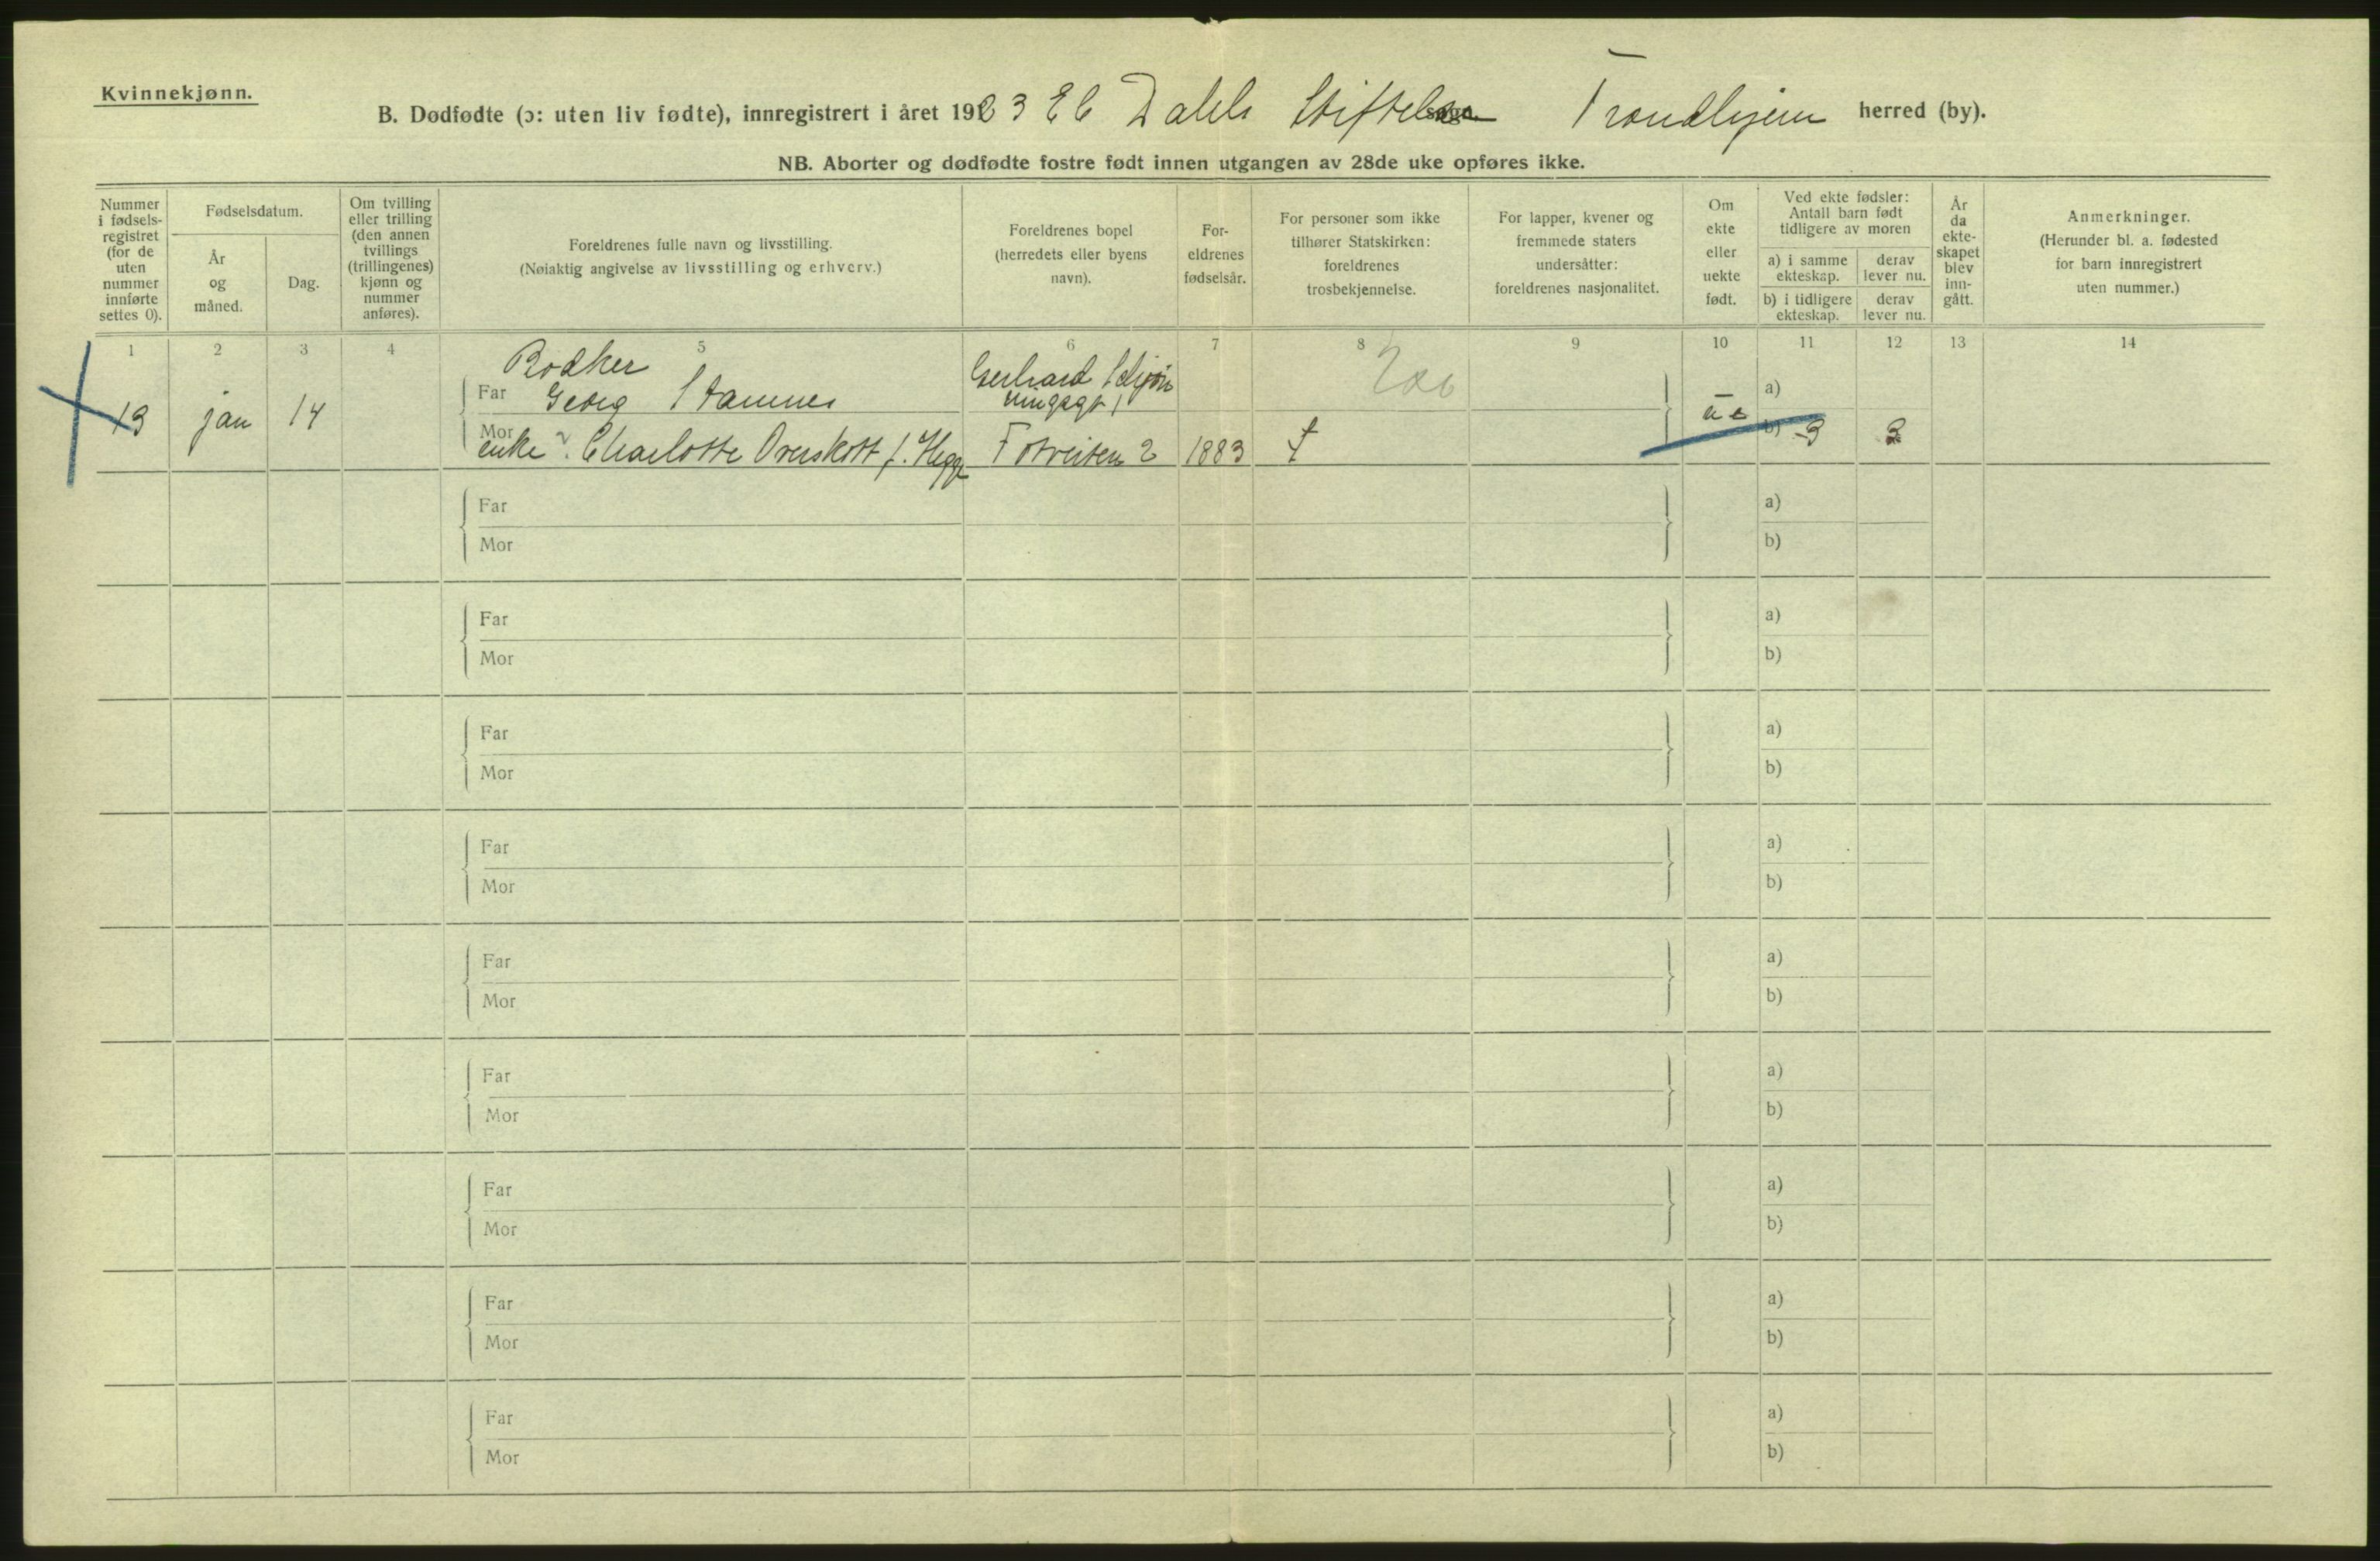 Kvinnekjønn.
B. Dødfødte (ɔ: uten liv fødte), innregistrert i året 1923 E C Dahls Stiftelse sogn. Trondhjem herred (by).
NB. Aborter og dødfødte fostre født innen utgangen av 28de uke opføres ikke.
Nummer i fødsels-registret (for de uten nummer innførte settes 0).
Fødselsdatum.
År og måned.
Dag.
Om tvilling eller trilling (den annen tvillings (trillingenes) kjønn og nummer anføres).
Foreldrenes fulle navn og livsstilling.
(Nøiaktig angivelse av livsstilling og erhverv.)
Foreldrenes bopel (herredets eller byens navn).
For-eldrenes fødselsår.
For personer som ikke tilhører Statskirken: foreldrenes trosbekjennelse.
For lapper, kvener og fremmede staters undersåtter: foreldrenes nasjonalitet.
Om ekte eller uekte født.
Ved ekte fødsler: Antall barn født tidligere av moren
a) i samme ekteskap.
derav lever nu.
b) i tidligere ekteskap.
derav lever nu.
År da ekte-skapet blev inn-gått.
Anmerkninger.
(Herunder bl. a. fødested for barn innregistrert uten nummer.)
1 2 3 4 5 6 7 8 9 10 11 12 13 14
Bødker
Far Georg Stamnes Gerhard
13 jan 14 ue a)
Mor enke Charlotte Overskott f. Hegge 2 1883 b) 3 3
Far a)
Mor b)
Far a)
Mor b)
Far a)
Mor b)
Far a)
Mor b)
Far a)
Mor b)
Far a)
Mor b)
Far a)
Mor b)
Far a)
Mor b)
Far a)
Mor b)